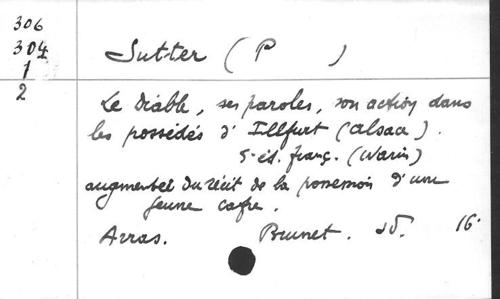 306
304
1
2
Sutter (P )
Le Diable, ses paroles, son action dans
les possédés d'Illfurt (Alsace).
5e éd. franç. (Warin)
augmentée du récit de la possession d'une
jeune cafre.
Arras. Brunet. sd. 16°